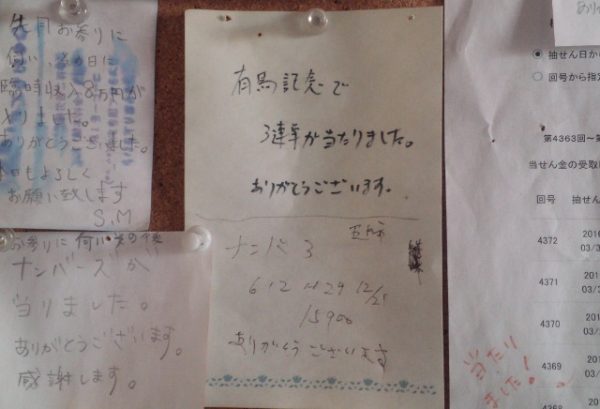 先月お参りに
伺い、その日に
臨時収入8万円が
入りました。
ありがとうございました。
本日もよろしく
お願い致します
S.M
お参りに伺いその後
ナンバーズが
当りました。
ありがとうございます。
感謝します。
有馬記念で
3連単が当たりました。
ありがとうございます。
ナンバ3
612 12/21
15900
ありがとうございます
抽せん日か
回号から指定
第4363回～第
当せん金の受取
回号 抽せん
4372 2016
03/3
4371 2016
03/3
4370 2016
03/
4369 2016
03/
4368
当たり
ました!